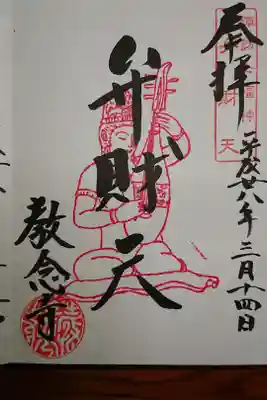 奉拝
平成廿八年三月十四日
弁財天
教念寺